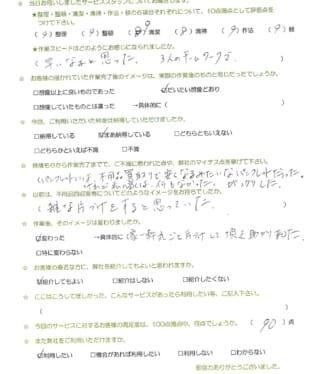 ☆ 当日お伺いしましたサービススタッフについてお聞きします。
★整理・整頓・清潔・清掃・作法・躾の6項目それぞれについて、10点満点として評価点を
つけて下さい。
(9)整理 (9)整頓 (9)清潔 (9)清掃 (9)作法 (9)躾
★作業スピードはどのようにお感じになられましたか。
(早いなぁと思った。3人のチームワークで )
☆ お客様の描かれていた作業完了後のイメージは、実際の作業後のものと同じだったでしょうか。
□想像以上に良いものであった ☑だいたい想像どおり
□想像していたものとは違った →具体的に( )
☆ 今回、ご利用いただいた料金は納得していただけましたか。
□納得している ☑まあ納得している □どちらともいえない
□どちらかといえば不満 □不満
☆ 見積もりから作業完了までで、ご不満に思われた点や、弊社のマイナス点を挙げて下さい。
(パンフレットには、不用品買取りで安くなるみたいなパンフレットだった。
何もなかった。がっかりした。
☆ 以前は、不用品回収業者についてどのようなイメージをお持ちでしたか。
(雑な片づけをすると思っていた。
☆ 作業後、そのイメージは変わりましたか。
☑変わった →具体的に(家一軒丸ごと片づけして頂き助かりました。)
□特に変わらない
☆ お客様の身近な方に、弊社を紹介してもよいと思われますか。
☑紹介してもよい □紹介はしない □紹介したくない
☆ ここはこうしてほしかった、こんなサービスがあったら利用したい等、ご記入下さい。
( )
☆ 今回のサービスに対するお客様の満足度は、100点満点中、何点でしょうか。(90)点
☆ また弊社をご利用いただけますか。
☑利用したい □機会があれば利用したい □利用しない □わからない
ご協力ありがとうございました。